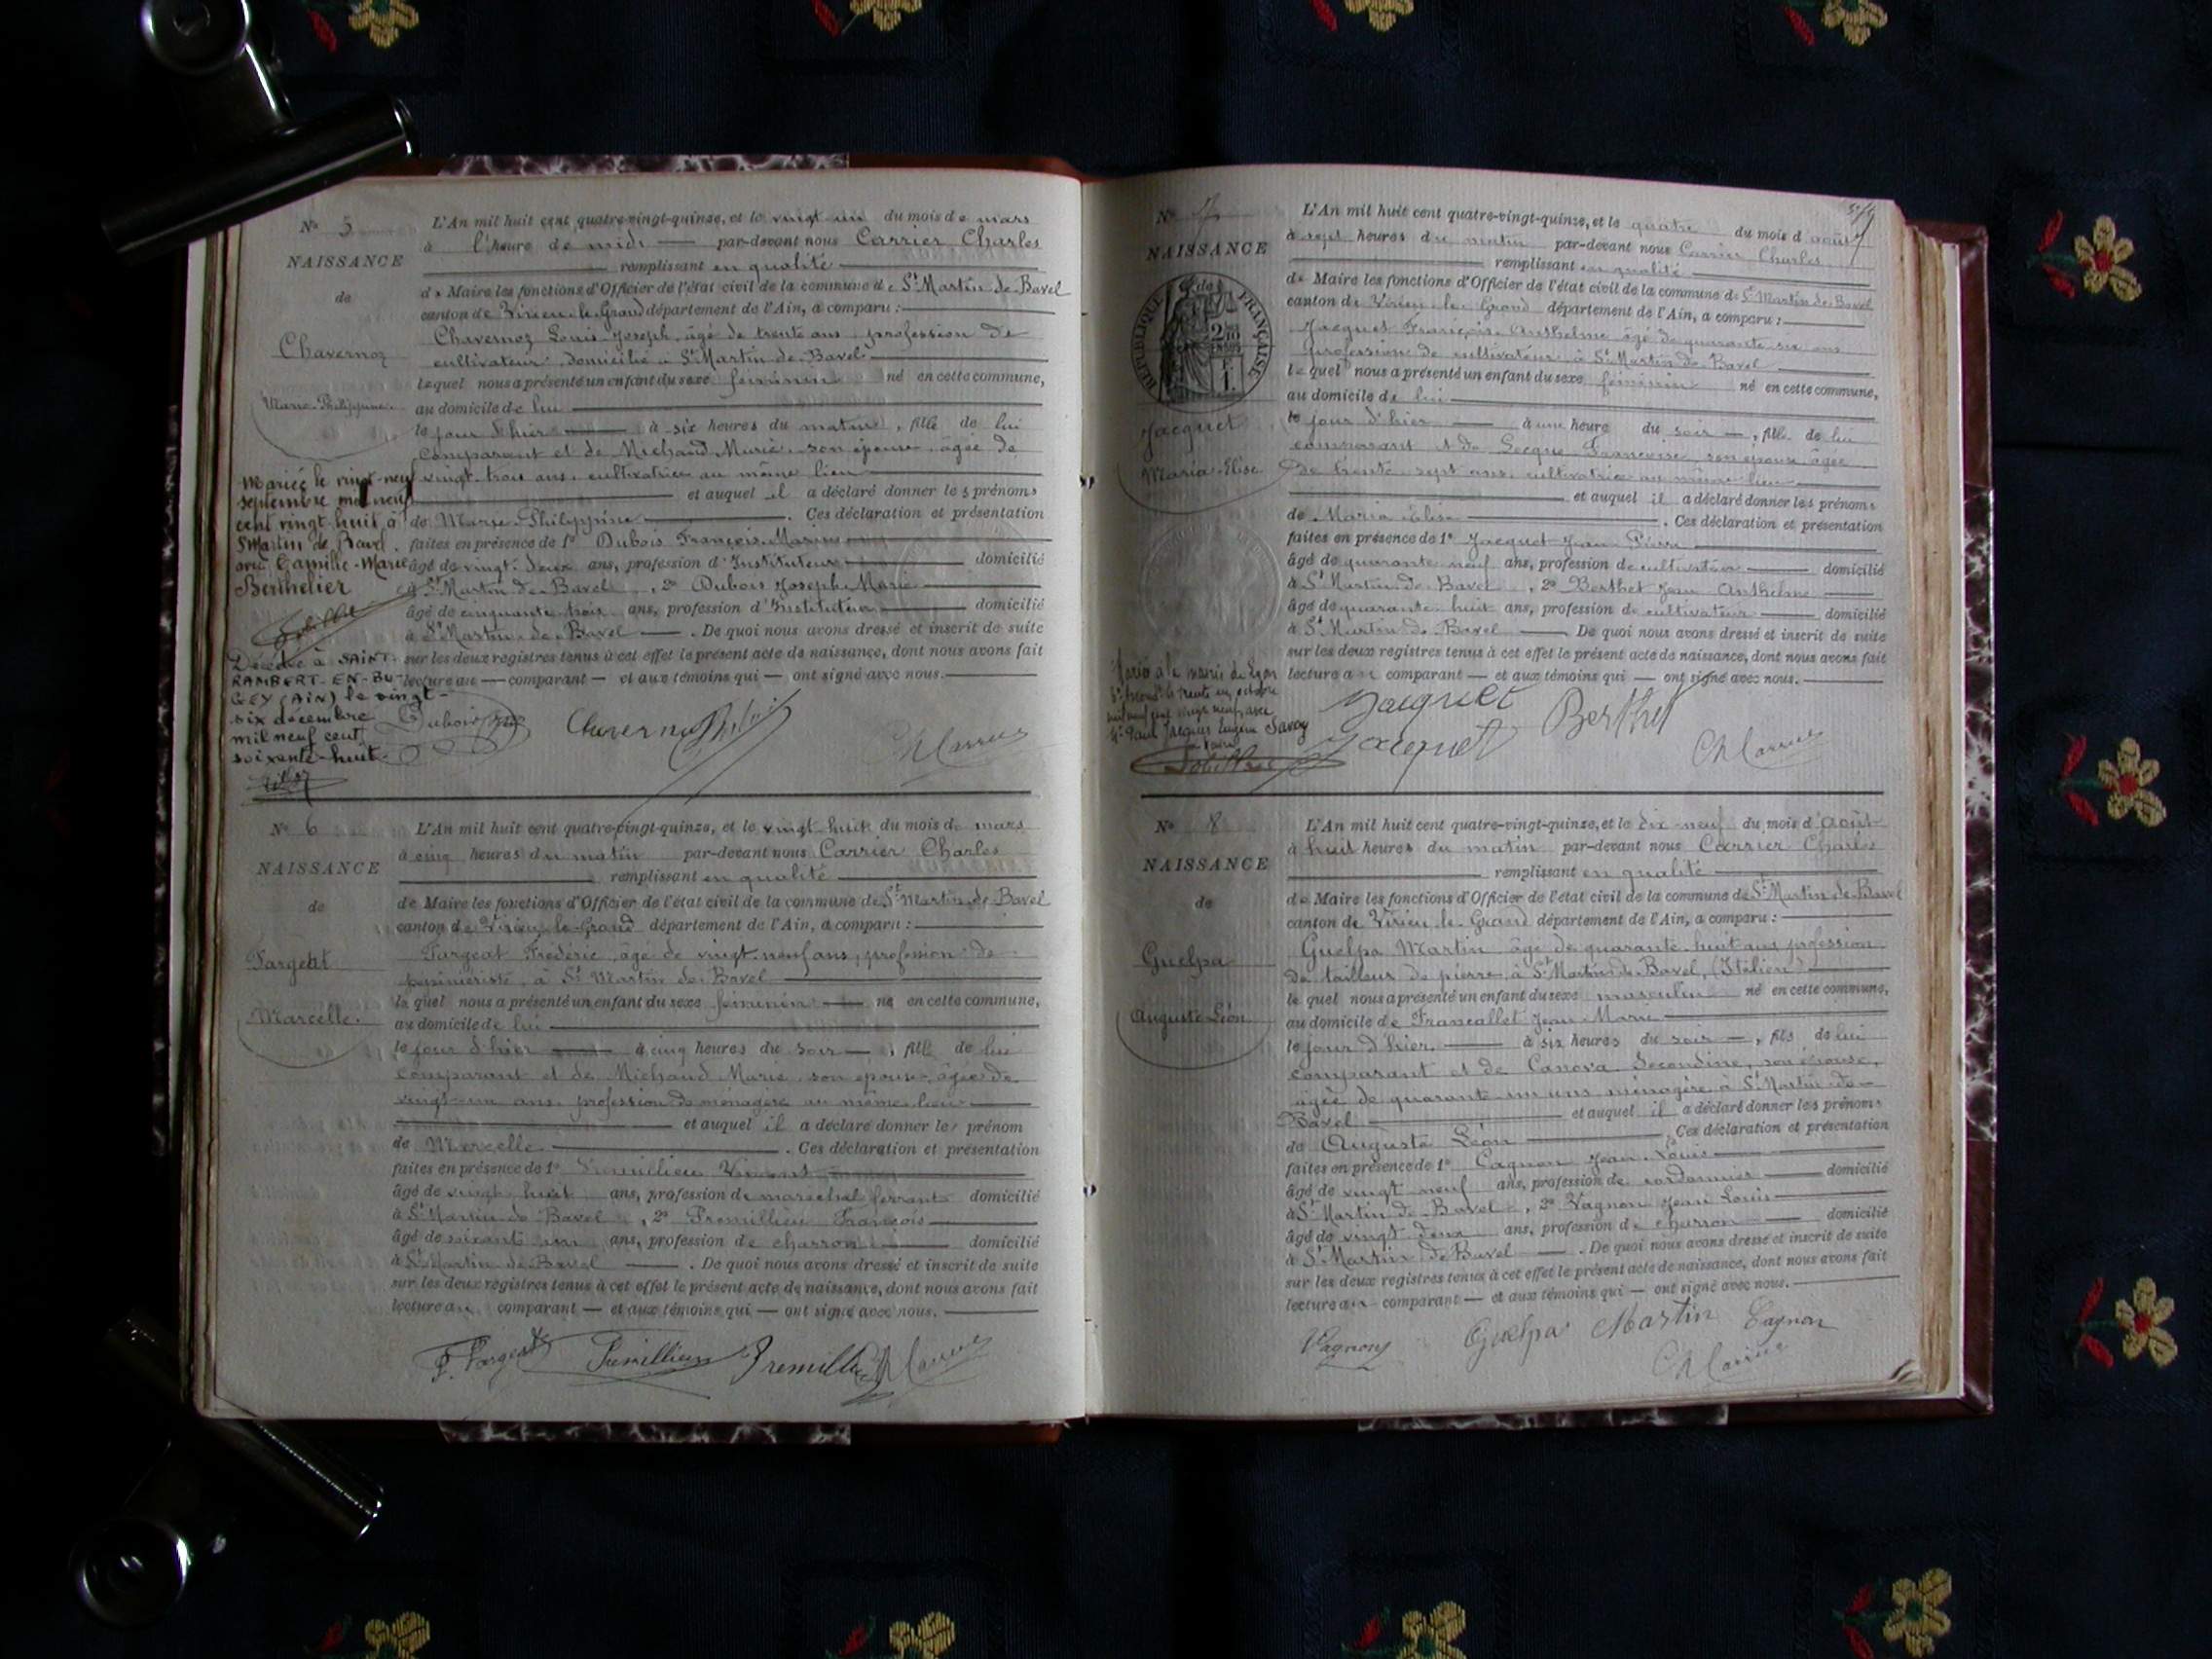 N° 5
NAISSANCE
de
Chavernoz
Marie-Philippine
Mariée le vingt-neuf
septembre mil neuf
cent vingt-huit à
St Martin de Bavel
avec Camille-Marie
Berthelier
Décédée à SAINT-
RAMBERT-EN-BU-
GEY (AIN) le vingt-
six décembre
mil neuf cent
soixante-huit.
L'An mil huit cent quatre-vingt-quinze, et le vingt-un du mois de mars
à l'heure de midi — par-devant nous Carrier Charles
remplissant en qualité
de Maire les fonctions d'Officier de l'état civil de la commune de St Martin-de-Bavel
canton de Virieu-le-Grand département de l'Ain, a comparu :
Chavernoz Louis Joseph, âgé de trente ans, profession de
cultivateur domicilié à St Martin-de-Bavel
lequel nous a présenté un enfant du sexe féminin né en cette commune,
au domicile de lui
le jour d'hier — à six heures du matin, fille de lui
comparant et de Michaud Marie, son épouse, âgée de
vingt-trois ans, cultivatrice au même lieu
et auquel il a déclaré donner les prénoms
de Marie-Philippine. Ces déclaration et présentation
faites en présence de 1° Dubois François-Marius
âgé de vingt-deux ans, profession d'Instituteur domicilié
à St Martin-de-Bavel, 2° Dubois Joseph-Marie
âgé de cinquante-trois ans, profession d'Instituteur domicilié
à St Martin-de-Bavel. De quoi nous avons dressé et inscrit de suite
sur les deux registres tenus à cet effet le présent acte de naissance, dont nous avons fait
lecture au — comparant — et aux témoins qui — ont signé avec nous.
Dubois
Ch Carrier
N° 6
NAISSANCE
de
Fargeat
Marcelle.
L'An mil huit cent quatre-vingt-quinze, et le vingt-huit du mois de mars
à cinq heures du matin par-devant nous Carrier Charles
remplissant en qualité
de Maire les fonctions d'Officier de l'état civil de la commune de St Martin-de-Bavel
canton de Virieu-le-Grand département de l'Ain, a comparu :
Fargeat Frédéric, âgé de vingt-neuf ans, profession de
pépiniériste, à St Martin-de-Bavel
lequel nous a présenté un enfant du sexe féminin — né en cette commune,
au domicile de lui
le jour d'hier — à cinq heures du soir —, fille de lui
comparant et de Michaud Marie, son épouse, âgée de
vingt-un ans, profession de ménagère au même lieu
et auquel il a déclaré donner le prénom
de Marcelle. Ces déclaration et présentation
faites en présence de 1° Vincent
âgé de vingt-huit ans, profession de maréchal ferrant domicilié
à St Martin-de-Bavel, 2° Premillieu François
âgé de soixante-un ans, profession de charron domicilié
à St Martin-de-Bavel. De quoi nous avons dressé et inscrit de suite
sur les deux registres tenus à cet effet le présent acte de naissance, dont nous avons fait
lecture au comparant — et aux témoins qui — ont signé avec nous.
F. Fargeat Premillieu Premillieu Ch Carrier
N° 7
NAISSANCE
de
RÉPUBLIQUE FRANÇAISE
Jacquet
Maria-Elise
L'An mil huit cent quatre-vingt-quinze, et le quatre du mois d'août
à sept heures du matin par-devant nous Carrier Charles
remplissant en qualité
de Maire les fonctions d'Officier de l'état civil de la commune de St Martin-de-Bavel
canton de Virieu-le-Grand département de l'Ain, a comparu :
Jacquet François-Anthelme âgé de quarante-six ans
profession de cultivateur à St Martin-de-Bavel
lequel nous a présenté un enfant du sexe féminin né en cette commune,
au domicile de lui
le jour d'hier — à une heure du soir —, fille de lui
comparant et de Françoise, son épouse, âgée
de trente-sept ans, cultivatrice au même lieu
et auquel il a déclaré donner les prénoms
de Maria-Elise. Ces déclaration et présentation
faites en présence de 1° Jacquet Jean-Pierre
âgé de quarante-neuf ans, profession de cultivateur domicilié
à St Martin-de-Bavel, 2° Berthet Jean-Anthelme
âgé de quarante-huit ans, profession de cultivateur domicilié
à St Martin-de-Bavel — De quoi nous avons dressé et inscrit de suite
sur les deux registres tenus à cet effet le présent acte de naissance, dont nous avons fait
lecture au comparant — et aux témoins qui — ont signé avec nous.
Jacquet Berthet
Jacquet Ch Carrier
N° 8
NAISSANCE
de
Guelpa
Auguste-Léon
L'An mil huit cent quatre-vingt-quinze, et le dix-neuf du mois d'août
à huit heures du matin par-devant nous Carrier Charles
remplissant en qualité
de Maire les fonctions d'Officier de l'état civil de la commune de St Martin-de-Bavel
canton de Virieu-le-Grand département de l'Ain, a comparu :
Guelpa Martin âgé de quarante-huit ans profession
de tailleur de pierre à St Martin-de-Bavel, (Italien)
lequel nous a présenté un enfant du sexe masculin né en cette commune,
au domicile de Francallet Jean-Marie
le jour d'hier — à six heures du soir —, fils de lui
comparant et de Canova Secondine, son épouse,
âgée de quarante-un ans ménagère à St Martin-de-
Bavel et auquel il a déclaré donner les prénoms
de Auguste Léon. Ces déclaration et présentation
faites en présence de 1° Cagnon Jean-Louis
âgé de vingt-neuf ans, profession de cordonnier domicilié
à St Martin-de-Bavel, 2° Vagnon Jean Louis
âgé de vingt-deux ans, profession de charron domicilié
à St Martin-de-Bavel. De quoi nous avons dressé et inscrit de suite
sur les deux registres tenus à cet effet le présent acte de naissance, dont nous avons fait
lecture au comparant — et aux témoins qui — ont signé avec nous.
Vagnon Guelpa Martin Cagnon
Ch Carrier